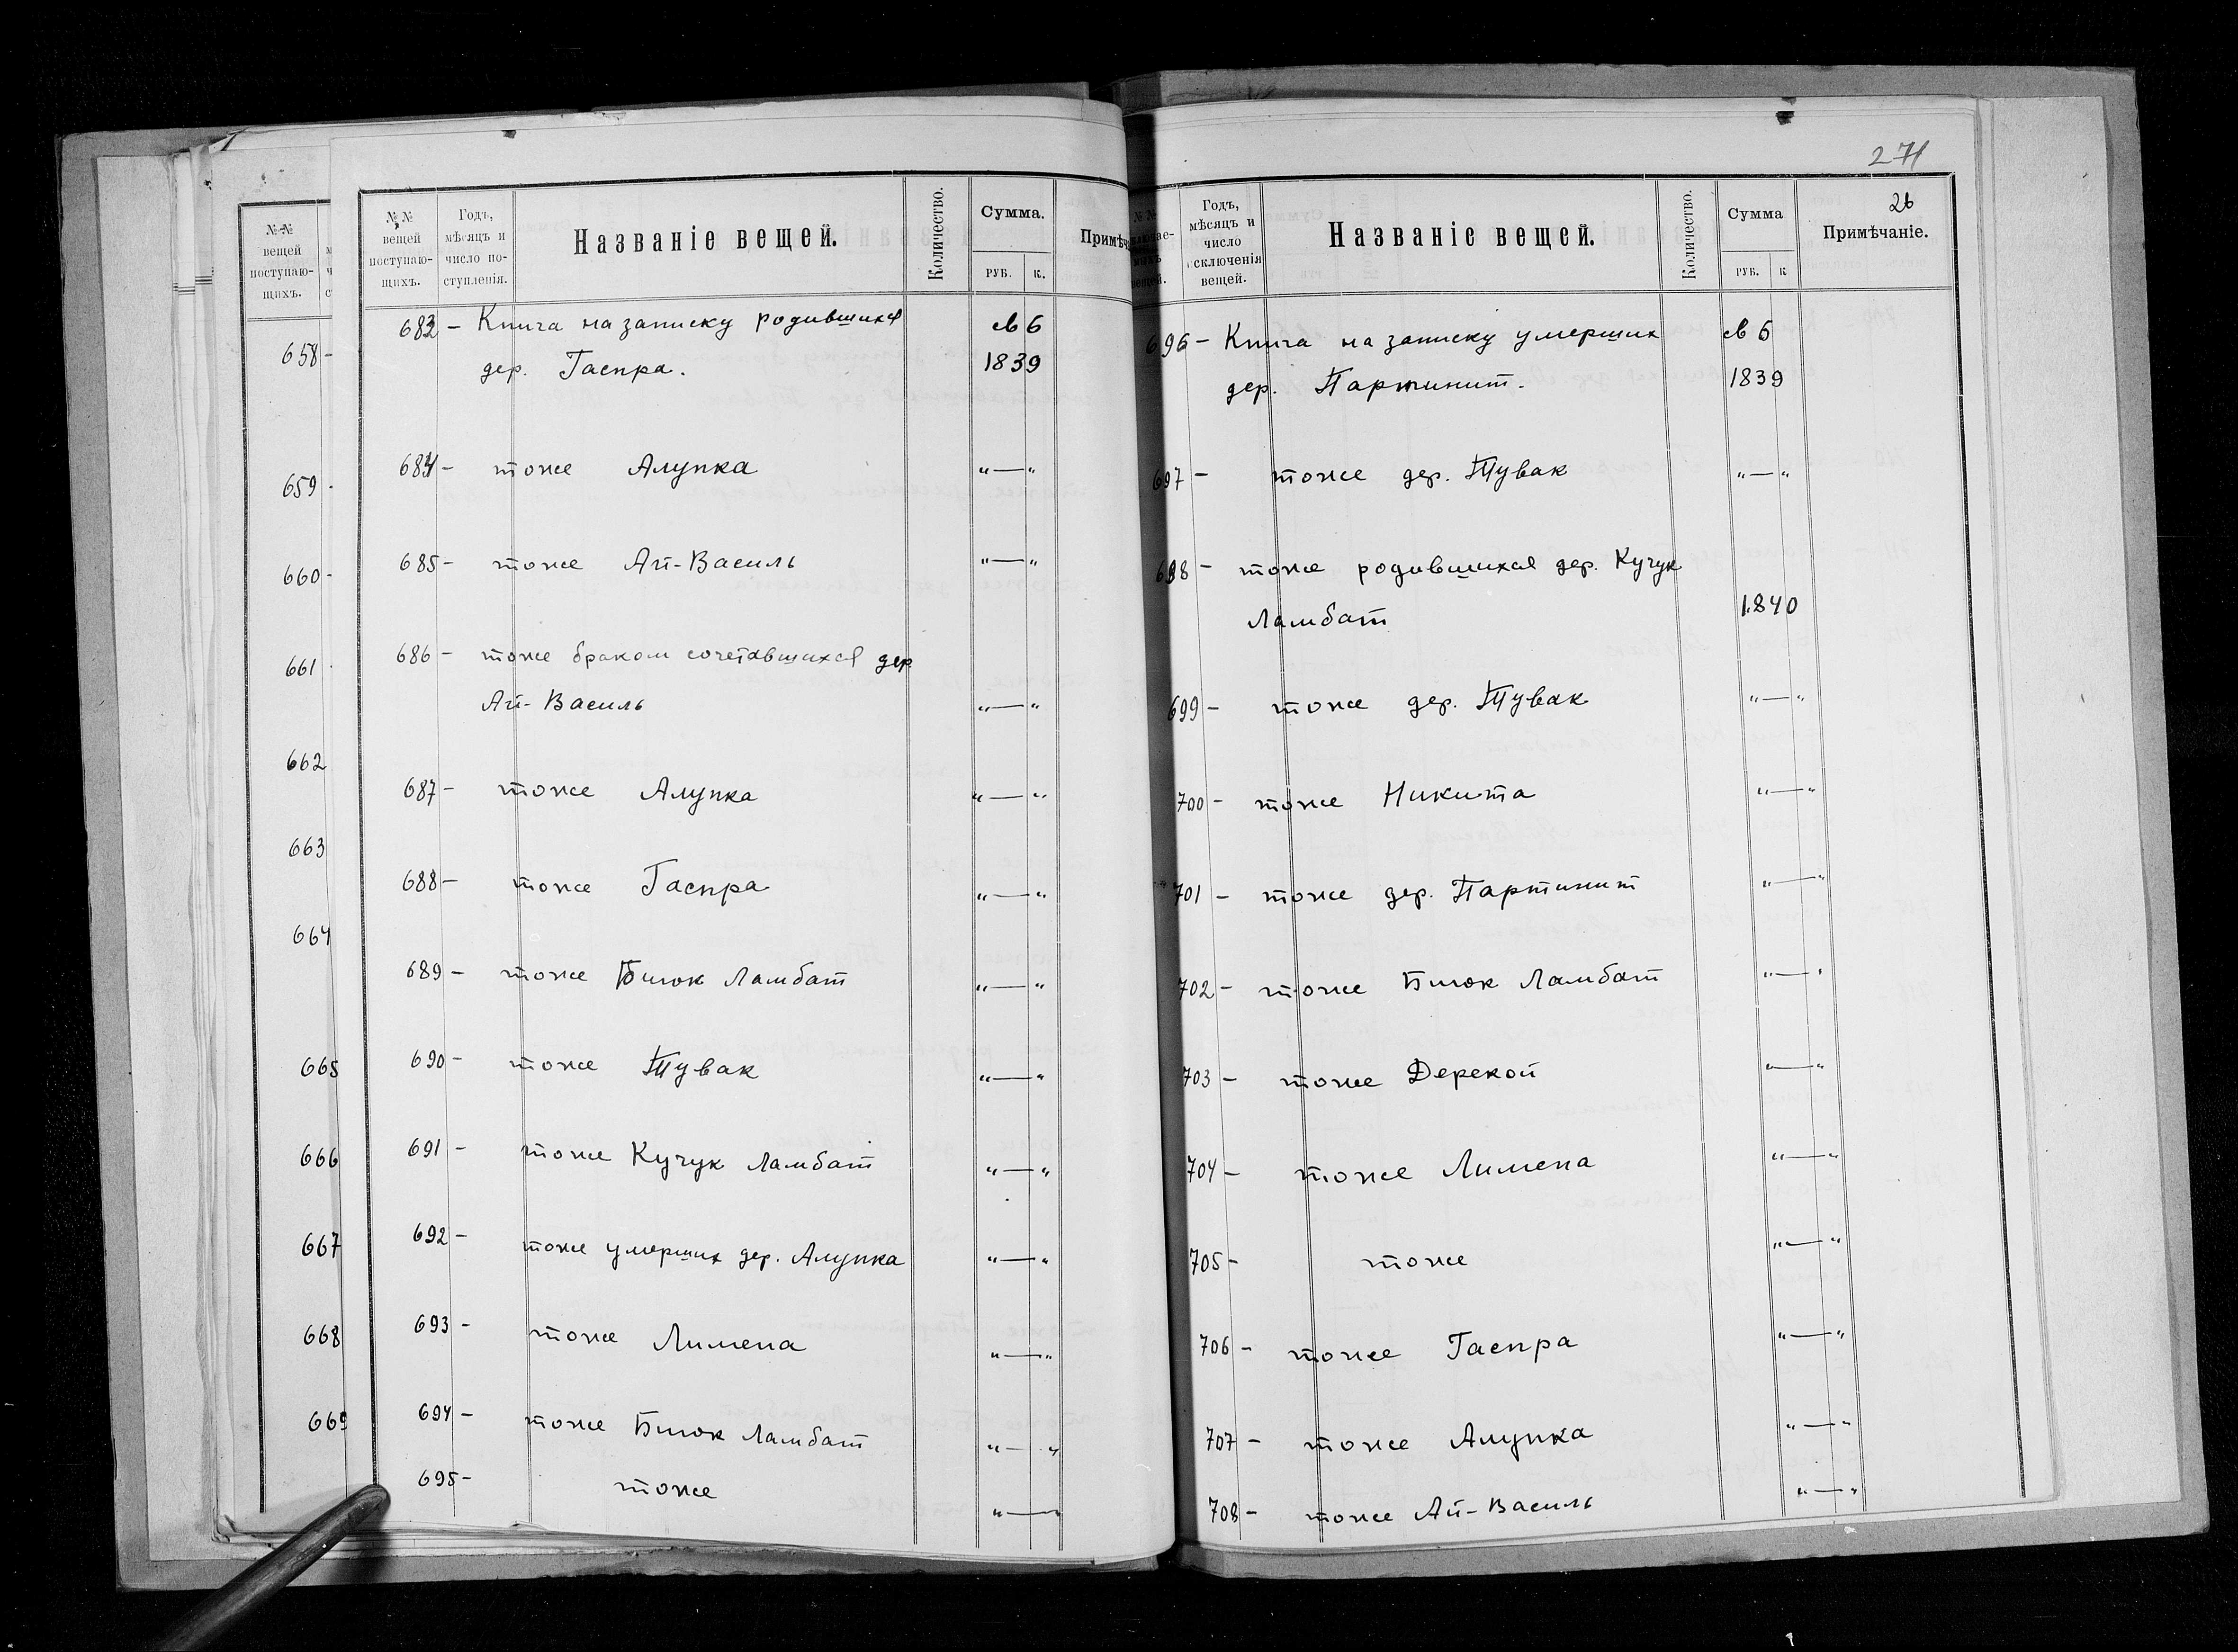 271
№№
вещей
поступаю-
щихъ.
658-
659-
660-
661-
662
663
664
665
666
667
668
669
№№ вещей поступаю- щихъ.
Годъ, мѣсяцъ и число по- ступленія.
Названіе вещей.
Количество.
Сумма.
РУБ. К.
683 - Книга на записку родившихся св 6
дер. Гаспра. 1839
684 - тоже Алупка "—"
685 - тоже Ай-Василь "—"
686 - тоже браком сочетавшихся дер
Ай-Василь "—"
687 - тоже Алупка "—"
688 - тоже Гаспра "—"
689 - тоже Биюк Ламбат "—"
690 - тоже Тувак "—"
691 - тоже Кучук Ламбат "—"
692 - тоже умерших дер. Алупка "—"
693 - тоже Лимена "—"
694 - тоже Биюк Ламбат "—"
695 - тоже "—"
Годъ, мѣсяцъ и число исключенія вещей.
Названіе вещей.
Количество.
Сумма
РУБ. К
26
Примѣчаніе.
696 - Книга на записку умерших св 6
дер. Партинит. 1839
697 - тоже дер. Тувак "—"
698 - тоже родившихся дер. Кучук
Ламбат 1840
699 - тоже дер. Тувак "—"
700 - тоже Никита "—"
701 - тоже дер. Партинит "—"
702 - тоже Биюк Ламбат "—"
703 - тоже Дерекой "—"
704 - тоже Лимена "—"
705 - тоже "—"
706 - тоже Гаспра "—"
707 - тоже Алупка "—"
708 - тоже Ай-Василь "—"